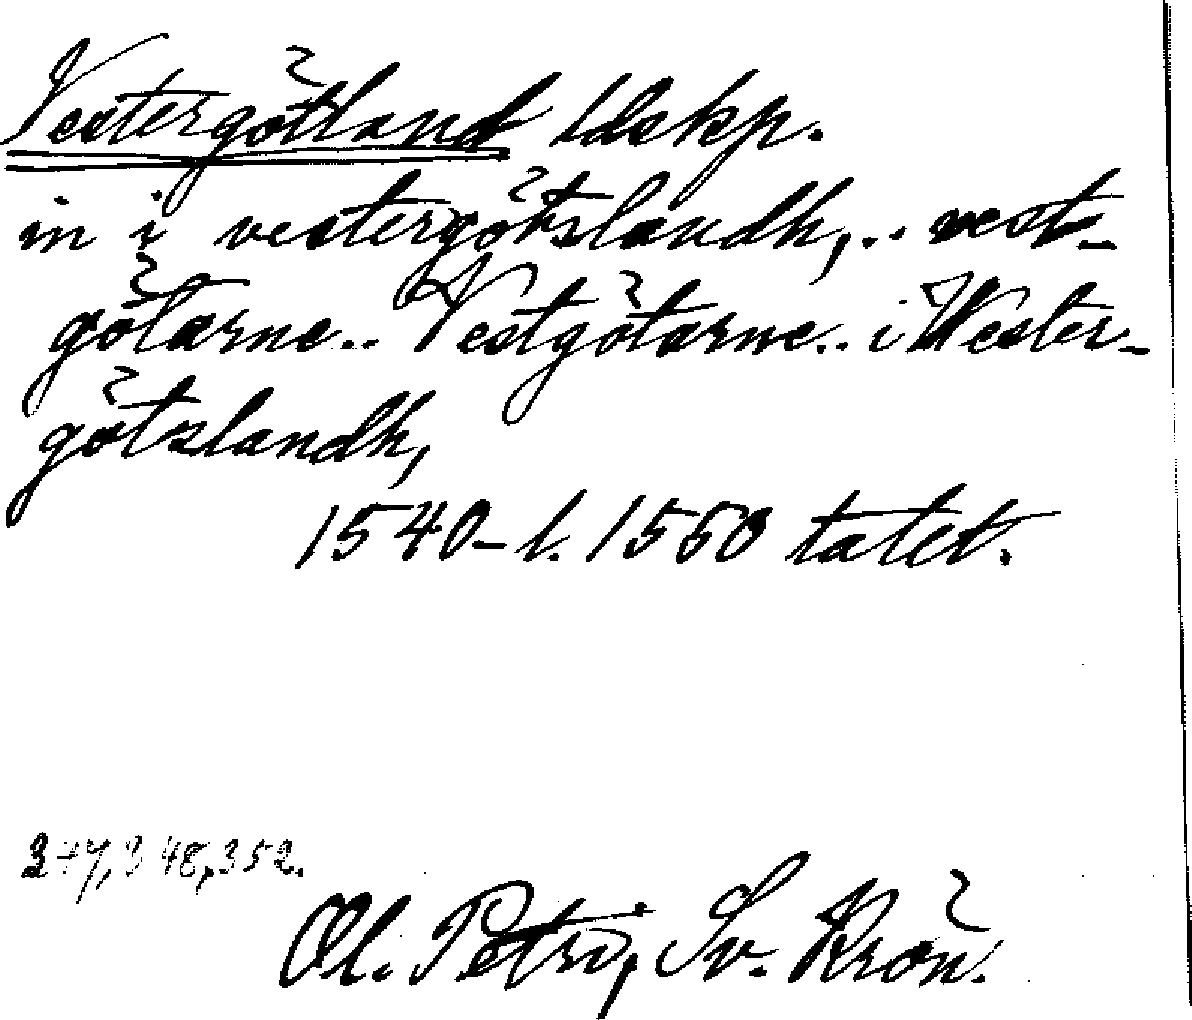 Vestergötland ldskp.
in i vestergötslandh,.. vest-
götarne.. Vestgötarne.. i Wester-
götzlandh,
1540- l. 1550 talet.
347, 348, 352.
Ol. Petri, Sv. Krön.